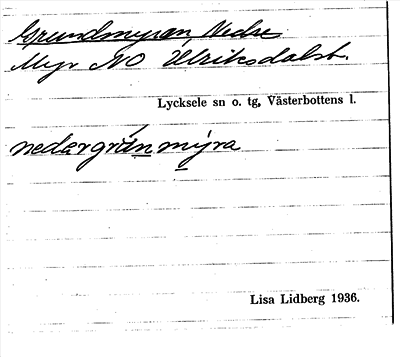 Grundmyran, Nedre
Myr NO Ulriksdalst.
Lycksele sn o. tg, Västerbottens l.
nedərgránmỳra
Lisa Lidberg 1936.